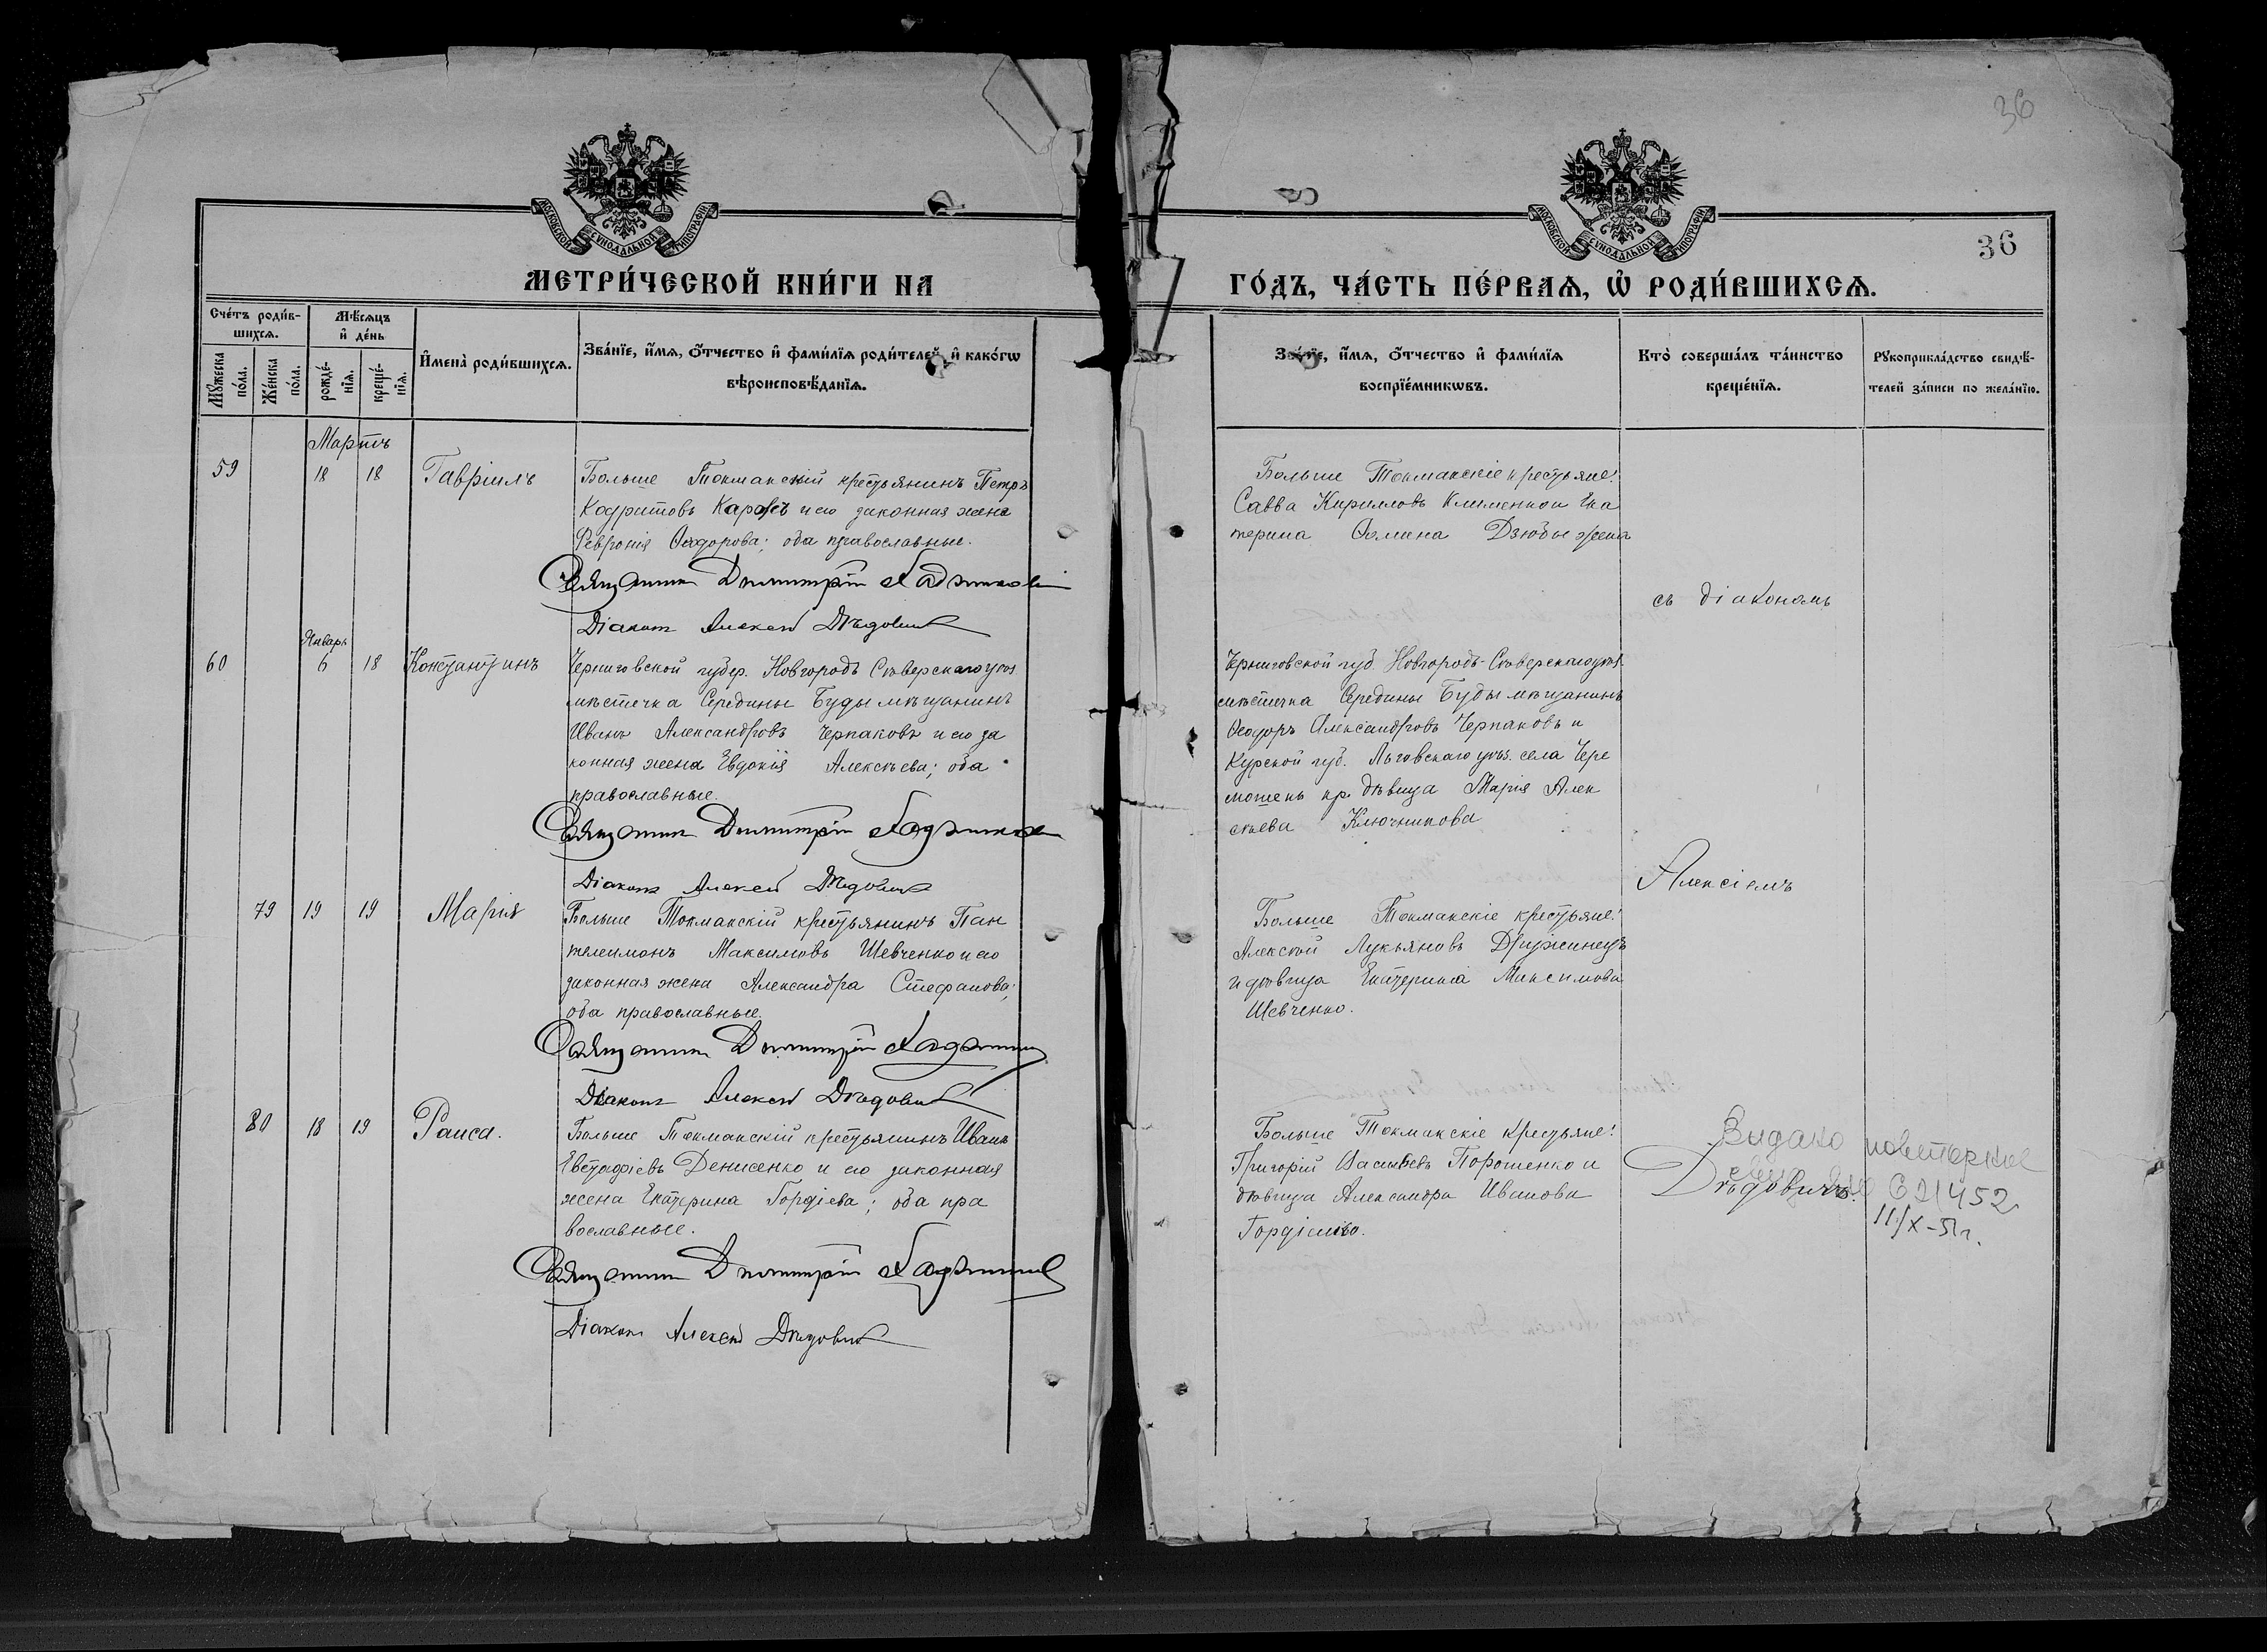 36
МОСКОВСКОЙ СѴНОДАЛЬНОЙ ТИПОГРАФІИ
МОСКОВСКОЙ СѴНОДАЛЬНОЙ ТИПОГРАФІИ
36
МЕТРИ́ЧЕСКОЙ КНИ́ГИ НА
ГО́ДЪ, ЧА́СТЬ ПЕ́РВАѦ, Ѡ҆ РОДИ́ВШИХСѦ.
Сче́тъ роди́в-
шихсѧ.
Мѣ́сѧцъ
и҆ де́нь
Мꙋ́жеска
по́ла.
Же́нска
по́ла.
рожде́-
нїѧ.
креще́-
нїѧ.
И҆мена̀ роди́вшихсѧ.
Зва́нїе, и҆́мѧ, ѻ҆́тчество и҆ фами́лїѧ роди́телей, и҆ како́гѡ
вѣроисповѣ́данїѧ.
Зва́нїе, и҆́мѧ, ѻ҆́тчество и҆ фами́лїѧ
воспрїе́мникѡвъ.
Кто̀ соверша́лъ та́инство
креще́нїѧ.
Рꙋкоприкла́дство свидѣ́-
телей за́писи по жела́нїю.
Мартъ
59 18 18 Гавріилъ
Больше Токмакскій крестьянинъ Петръ
Кодратовъ и его законная жена
Февронія Ѳеодорова; оба православные.
Священникъ Димитрій
Діаконъ Алексей Дѣдовичъ
Больше Токмакскіе крестьяне:
Савва Кирилловъ Клименко и Ека
терина Ѳомина Дзюбы жена
съ діакономъ
Январь
60 6 18 Константинъ
Черниговской губер. Новгородъ Сѣверскаго уѣз.
мѣстечка Середины Буды мѣщанинъ
Иванъ Александровъ Черпаковъ и его за
конная жена Евдокія Алексѣева; оба
православные.
Священникъ Димитрій
Діаконъ Алексей Дѣдовичъ
Черниговской губ. Новгородъ-Сѣверскаго уѣз.
мѣстечка Середины Буды мѣщанинъ
Ѳеодоръ Александровъ Черпаковъ и
Курской губ. Льговскаго уѣз. села Чере
мошекъ кр. дѣвица Марія Алек
сѣева Ключникова
Алексіемъ
79 19 19 Марія
Больше Токмакскій крестьянинъ Пан
телеимонъ Максимовъ Шевченко и его
законная жена Александра Стефанова;
оба православные.
Священникъ Димитрій
Діаконъ Алексей Дѣдовичъ
Больше Токмакскіе крестьяне:
Алексѣй Лукьяновъ Дружинецъ
и дѣвица Екатерина Максимова
Шевченко.
80 18 19 Раиса.
Больше Токмакскій крестьянинъ Иванъ
Евстафіевъ Денисенко и его законная
жена Екатерина Гордіева; оба пра
вославные.
Священникъ Димитрій
Діаконъ Алексей Дѣдовичъ
Больше Токмакскіе крестьяне:
Григорій Васильевъ Порошенко и
дѣвица Александра Иванова
Гордіенко.
Дѣдовичъ.
Видано повторное
452
11/X-51г.